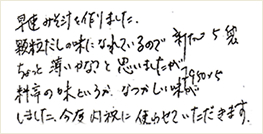 早速みそ汁を作りました。
顆粒だしの味になれているので
ちょっと薄いかな？と思いましたが
料亭の味というか、なつかしい味が
しました、今度内祝に使わせていただきます。
5袋
1950×5